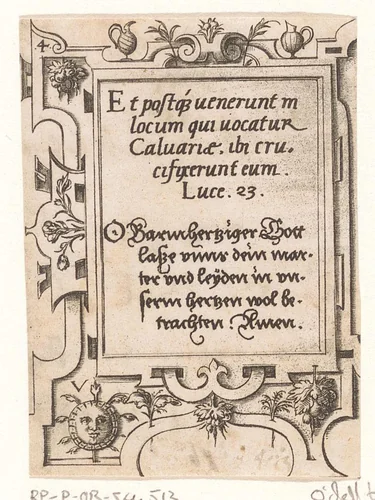 4.
Et postq̃ uenerunt in
locum qui uocatur
Caluariæ, ibi cru-
cifixerunt eum.
Luce. 23.
O Barmhertziger Gott
laße vnns dein mar-
ter vnd leÿden in vn-
serm hertzen wol be-
trachten: Amen.
RP-P-OB-54.513